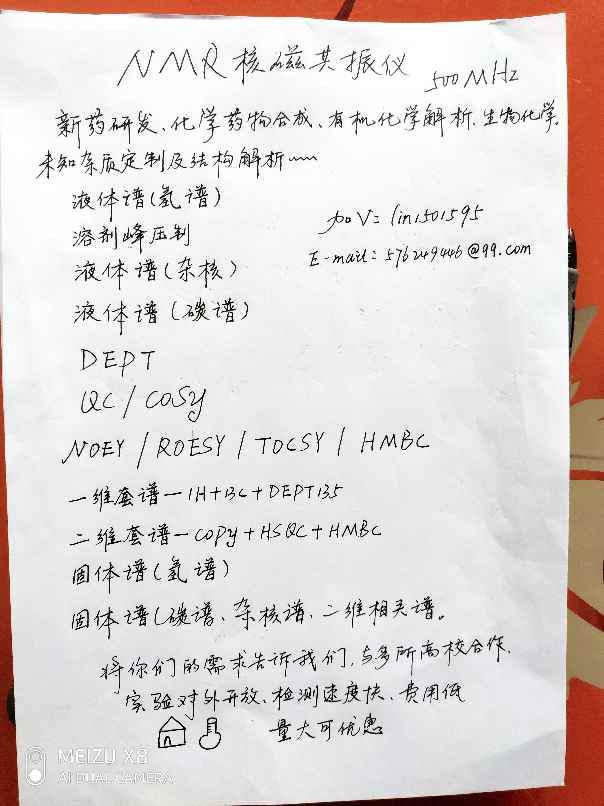 NMR核磁共振仪 500MHz
新药研发、化学药物合成、有机化学解析、生物化学、
未知杂质定制及结构解析~~
液体谱(氢谱)
加V: lin1501595
溶剂峰压制
E-mail: 576249446@qq.com
液体谱(杂核)
液体谱(碳谱)
DEPT
QC/COSY
NOEY/ROESY/TOCSY/HMBC
一维套谱—1H+13C+DEPT135
二维套谱—COPY+HSQC+HMBC
固体谱(氢谱)
固体谱(碳谱、杂核谱、二维相关谱。
将你们的需求告诉我们,与多所高校合作.
实验对外开放、检测速度快、费用低
量大可优惠
MEIZU X8
AI DUAL CAMERA